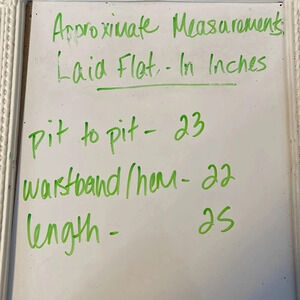 Approximate Measurements
Laid Flat - In Inches
pit to pit - 23
waistband/hem - 22
length - 25